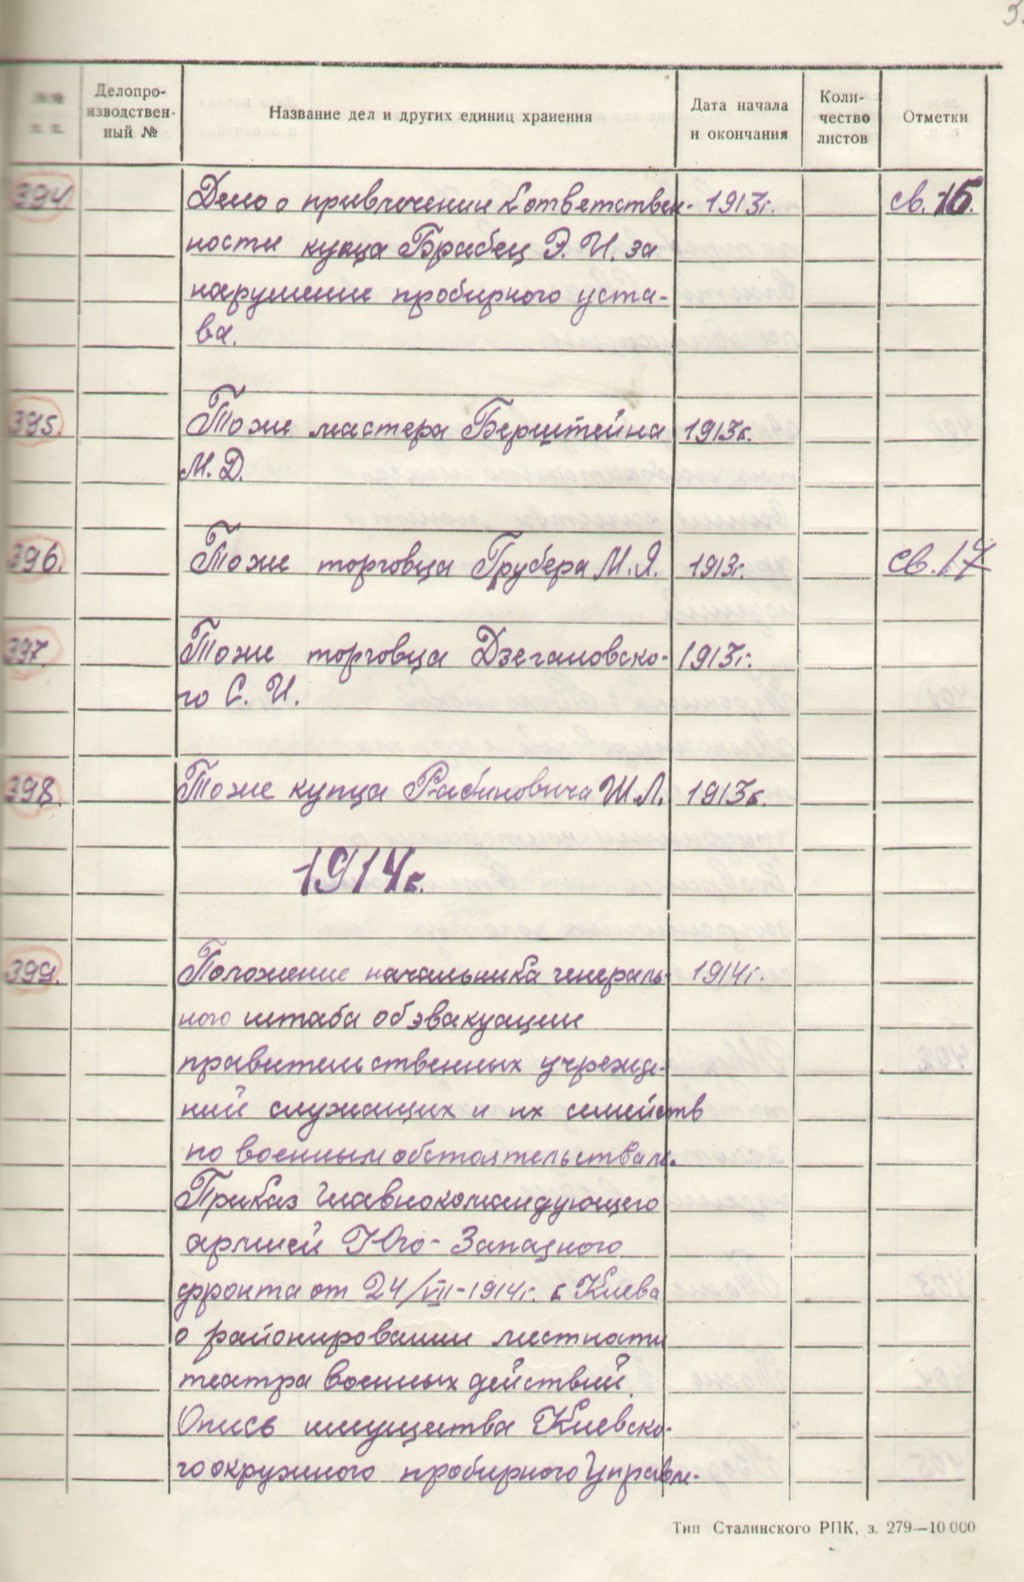 Делопро-
изводствен-
ный №
Название дел и других единиц хранения
Дата начала
и окончания
Коли-
чество
листов
Отметки
394. Дело о привлечении к ответствен- 1913г. св. 16.
ности купца Брабец Э. И. за
нарушение пробирного уста-
ва.
395. Тоже мастера Берштейна 1913г.
М. Д.
396. Тоже торговца Грубера М. Я. 1913г. св. 17
397. Тоже торговца Дзегановско- 1913г.
го С. И.
398. Тоже купца Рабиновича Ш. Л. 1913г.
1914г.
399. Положение начальника генераль- 1914г.
ного штаба об эвакуации
правительственных учрежде-
ний служащих и их семейств
по военным обстоятельствам.
Приказ главнокомандующего
армией Юго-Западного
фронта от 24/VII-1914г. г. Киева
о районировании местности
театра военных действий.
Опись имущества Киевско-
го окружного пробирного Управле-
Тип Сталинского РПК, з. 279—10 000